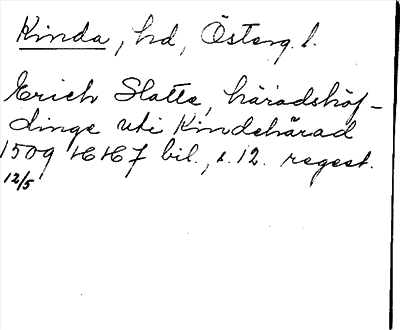 Kinda, hd, Österg. l.
Erich Slatte, häradshöf-
dinge uti Kindehärad
1509 HH7 bil., s. 12. regest.
12/5